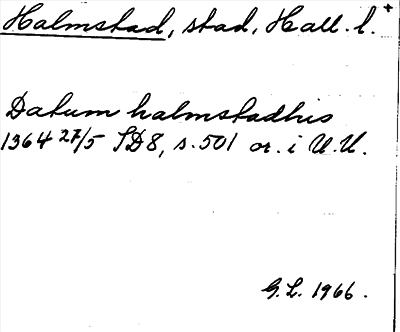 Halmstad, stad, Hall. l. +
Datum halmstadhis
1364 27/5 SD8, s. 501 or. i U.U.
G.L. 1966.